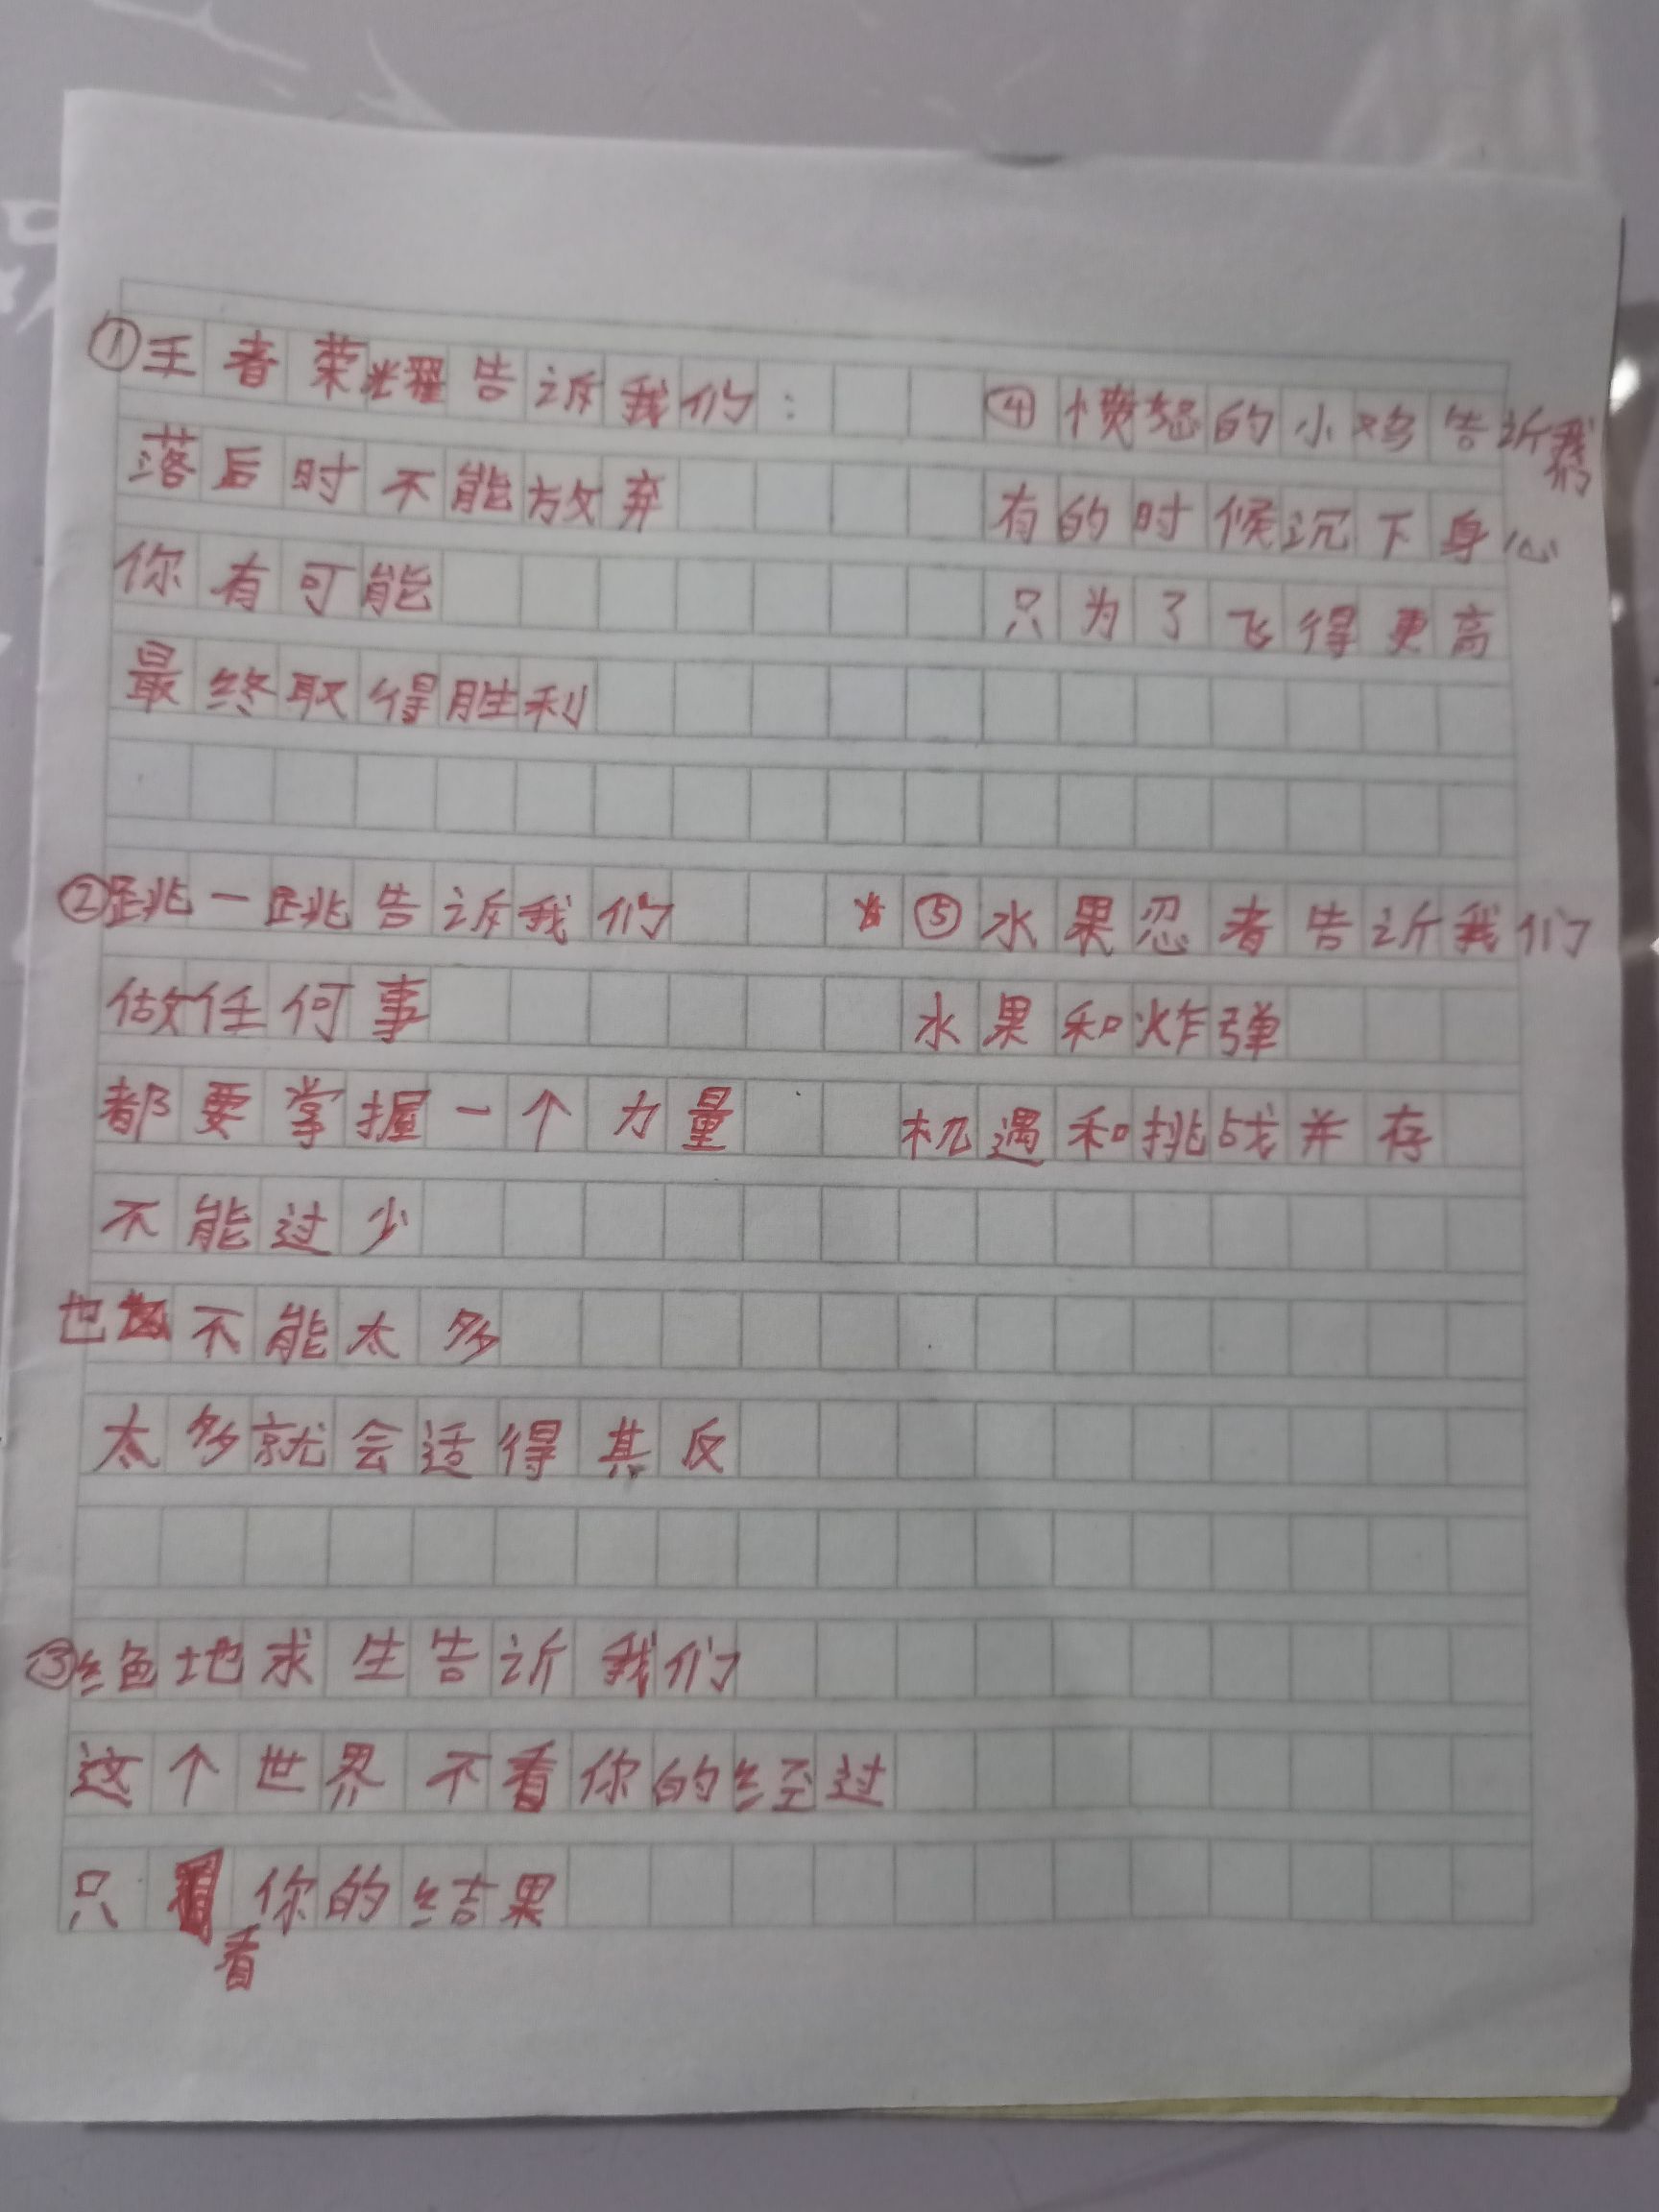 ①王者荣耀告诉我们：
落后时不能放弃
你有可能
最终取得胜利
②跳一跳告诉我们
做任何事
都要掌握一个力量
不能过少
也不能太多
太多就会适得其反
③绝地求生告诉我们
这个世界不看你的经过
只看你的结果
④愤怒的小鸡告诉我们
有的时候沉下身心
只为了飞得更高
⑤水果忍者告诉我们
水果和炸弹
机遇和挑战并存